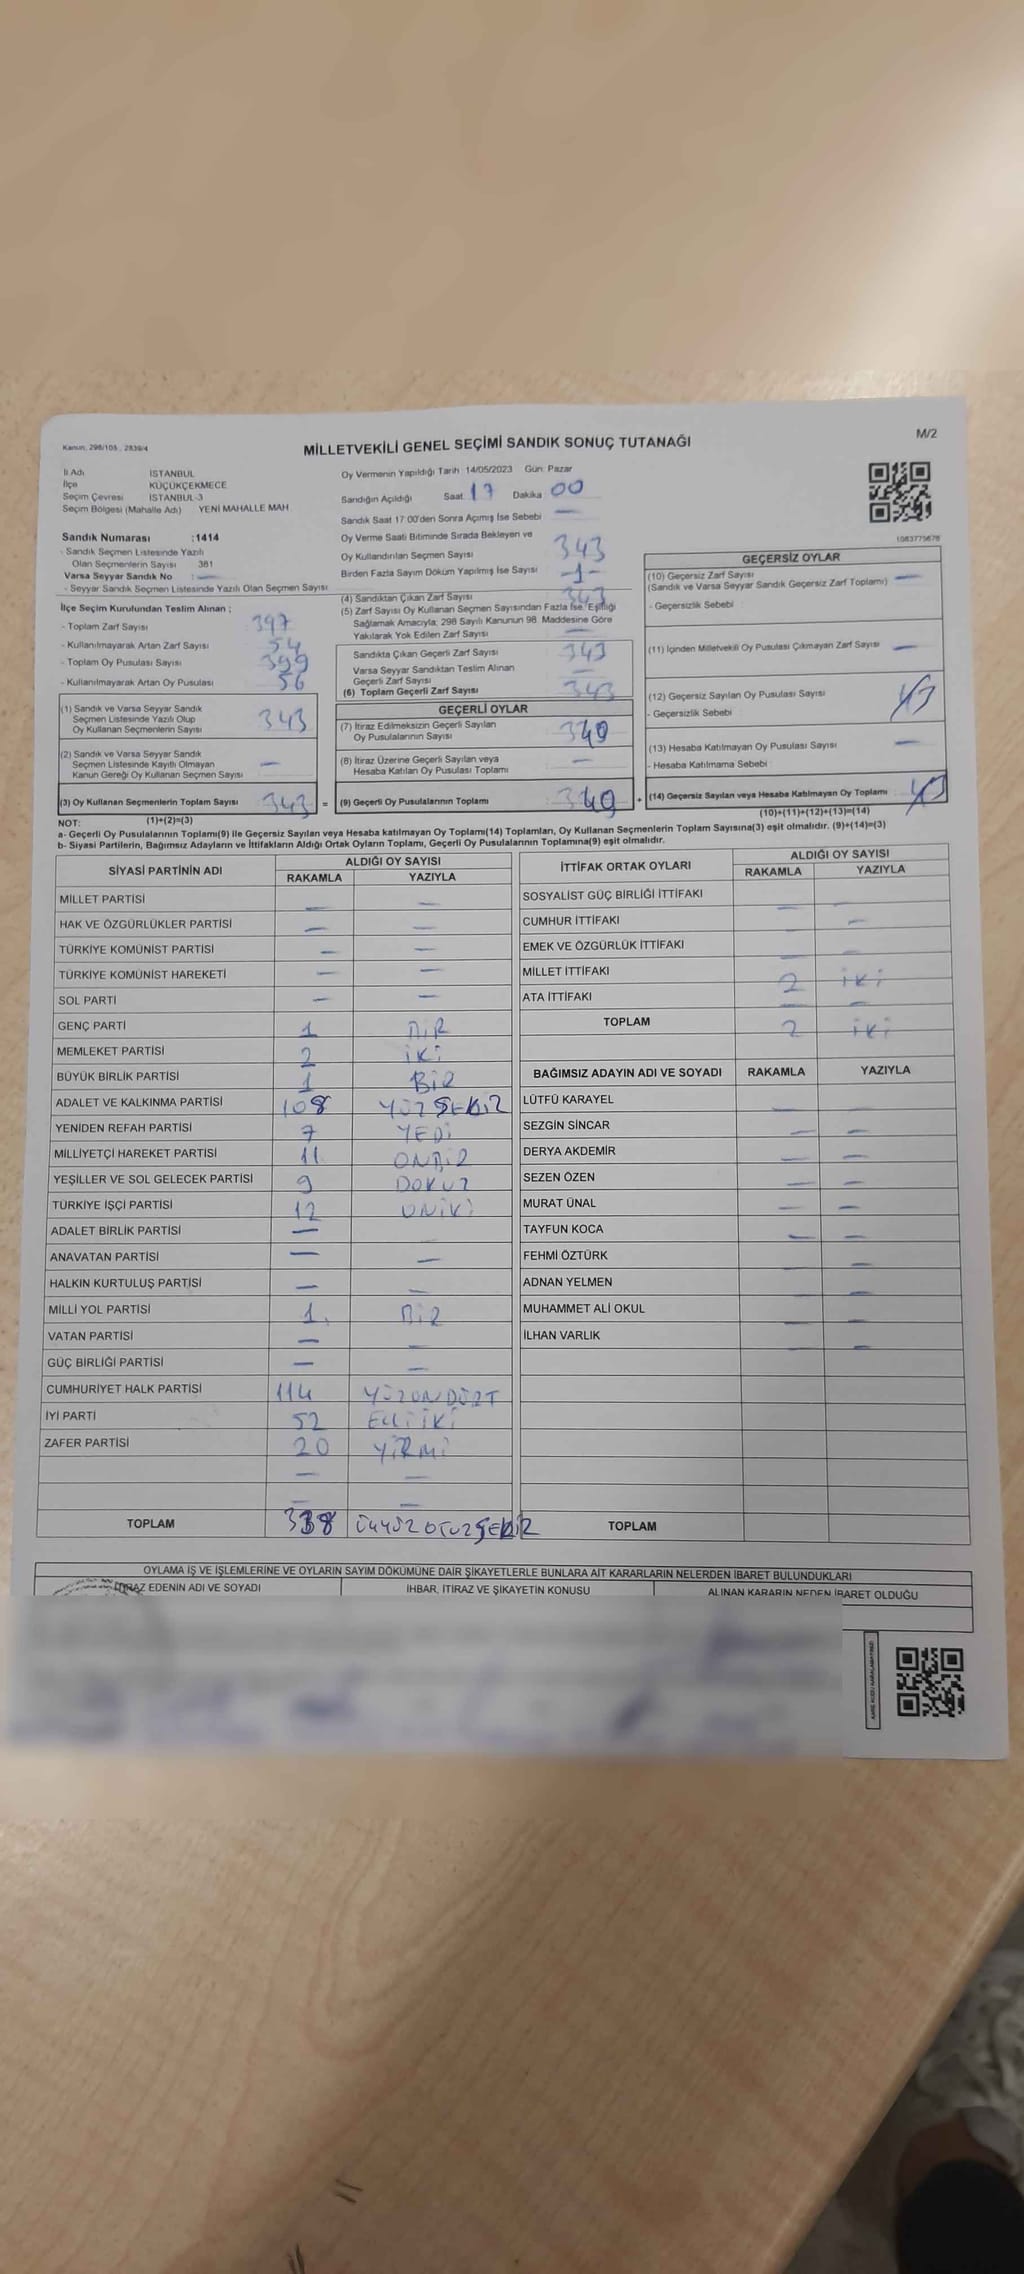 Kanun, 298/105 , 2839/4
MİLLETVEKİLİ GENEL SEÇİMİ SANDIK SONUÇ TUTANAĞI
M/2
İl Adı İSTANBUL
İlçe KÜÇÜKÇEKMECE
Seçim Çevresi İSTANBUL-3
Seçim Bölgesi (Mahalle Adı) YENİ MAHALLE MAH.
Sandık Numarası :1414
- Sandık Seçmen Listesinde Yazılı
Olan Seçmenlerin Sayısı 381
Varsa Seyyar Sandık No : —
- Seyyar Sandık Seçmen Listesinde Yazılı Olan Seçmen Sayısı
İlçe Seçim Kurulundan Teslim Alınan ;
- Toplam Zarf Sayısı 397
- Kullanılmayarak Artan Zarf Sayısı 54
- Toplam Oy Pusulası Sayısı 399
- Kullanılmayarak Artan Oy Pusulası 56
(1) Sandık ve Varsa Seyyar Sandık
Seçmen Listesinde Yazılı Olup
Oy Kullanan Seçmenlerin Sayısı 343
(2) Sandık ve Varsa Seyyar Sandık
Seçmen Listesinde Kayıtlı Olmayan
Kanun Gereği Oy Kullanan Seçmen Sayısı —
(3) Oy Kullanan Seçmenlerin Toplam Sayısı 343 =
Oy Vermenin Yapıldığı Tarih 14/05/2023 Gün: Pazar
Sandığın Açıldığı Saat 17 Dakika 00
Sandık Saat 17:00'den Sonra Açımış İse Sebebi —
Oy Verme Saati Bitiminde Sırada Bekleyen ve
Oy Kullandırılan Seçmen Sayısı 343
Birden Fazla Sayım Döküm Yapılmış İse Sayısı -1-
(4) Sandıktan Çıkan Zarf Sayısı 343
(5) Zarf Sayısı Oy Kullanan Seçmen Sayısından Fazla İse, Eşitliği
Sağlamak Amacıyla; 298 Sayılı Kanunun 98. Maddesine Göre
Yakılarak Yok Edilen Zarf Sayısı —
Sandıkta Çıkan Geçerli Zarf Sayısı 343
Varsa Seyyar Sandıktan Teslim Alınan
Geçerli Zarf Sayısı —
(6) Toplam Geçerli Zarf Sayısı 343
GEÇERLİ OYLAR
(7) İtiraz Edilmeksizin Geçerli Sayılan
Oy Pusulalarının Sayısı 340
(8) İtiraz Üzerine Geçerli Sayılan veya
Hesaba Katılan Oy Pusulası Toplamı —
(9) Geçerli Oy Pusulalarının Toplamı 340 +
1083775678
GEÇERSİZ OYLAR
(10) Geçersiz Zarf Sayısı —
(Sandık ve Varsa Seyyar Sandık Geçersiz Zarf Toplamı)
- Geçersizlik Sebebi :
(11) İçinden Milletvekili Oy Pusulası Çıkmayan Zarf Sayısı —
(12) Geçersiz Sayılan Oy Pusulası Sayısı 3
- Geçersizlik Sebebi :
(13) Hesaba Katılmayan Oy Pusulası Sayısı —
- Hesaba Katılmama Sebebi :
(14) Geçersiz Sayılan veya Hesaba Katılmayan Oy Toplamı : 3
NOT: (1)+(2)=(3) (10)+(11)+(12)+(13)=(14)
a- Geçerli Oy Pusulalarının Toplamı(9) ile Geçersiz Sayılan veya Hesaba katılmayan Oy Toplamı(14) Toplamları, Oy Kullanan Seçmenlerin Toplam Sayısına(3) eşit olmalıdır. (9)+(14)=(3)
b- Siyasi Partilerin, Bağımsız Adayların ve İttifakların Aldığı Ortak Oyların Toplamı, Geçerli Oy Pusulalarının Toplamına(9) eşit olmalıdır.
SİYASİ PARTİNİN ADI ALDIĞI OY SAYISI
RAKAMLA YAZIYLA
MİLLET PARTİSİ — —
HAK VE ÖZGÜRLÜKLER PARTİSİ — —
TÜRKİYE KOMÜNİST PARTİSİ — —
TÜRKİYE KOMÜNİST HAREKETİ — —
SOL PARTİ — —
GENÇ PARTİ 1 BİR
MEMLEKET PARTİSİ 2 İKİ
BÜYÜK BİRLİK PARTİSİ 1 BİR
ADALET VE KALKINMA PARTİSİ 108 YÜZSEKİZ
YENİDEN REFAH PARTİSİ 7 YEDİ
MİLLİYETÇİ HAREKET PARTİSİ 11 ONBİR
YEŞİLLER VE SOL GELECEK PARTİSİ 9 DOKUZ
TÜRKİYE İŞÇİ PARTİSİ 12 ONİKİ
ADALET BİRLİK PARTİSİ —
ANAVATAN PARTİSİ — —
HALKIN KURTULUŞ PARTİSİ — —
MİLLİ YOL PARTİSİ 1 BİR
VATAN PARTİSİ — —
GÜÇ BİRLİĞİ PARTİSİ — —
CUMHURİYET HALK PARTİSİ 114 YÜZONDÖRT
İYİ PARTİ 52 ELLİİKİ
ZAFER PARTİSİ 20 YİRMİ
— —
— —
TOPLAM 338 ÜÇYÜZOTUZSEKİZ
İTTİFAK ORTAK OYLARI ALDIĞI OY SAYISI
RAKAMLA YAZIYLA
SOSYALİST GÜÇ BİRLİĞİ İTTİFAKI — —
CUMHUR İTTİFAKI — —
EMEK VE ÖZGÜRLÜK İTTİFAKI — —
MİLLET İTTİFAKI 2 İKİ
ATA İTTİFAKI — —
TOPLAM 2 İKİ
BAĞIMSIZ ADAYIN ADI VE SOYADI RAKAMLA YAZIYLA
LÜTFÜ KARAYEL — —
SEZGİN SİNCAR — —
DERYA AKDEMİR — —
SEZEN ÖZEN — —
MURAT ÜNAL — —
TAYFUN KOCA — —
FEHMİ ÖZTÜRK — —
ADNAN YELMEN — —
MUHAMMET ALİ OKUL — —
İLHAN VARLIK — —
TOPLAM
OYLAMA İŞ VE İŞLEMLERİNE VE OYLARIN SAYIM DÖKÜMÜNE DAİR ŞİKAYETLERLE BUNLARA AİT KARARLARIN NELERDEN İBARET BULUNDUKLARI
İTİRAZ EDENİN ADI VE SOYADI İHBAR, İTİRAZ VE ŞİKAYETİN KONUSU ALINAN KARARIN NEDEN İBARET OLDUĞU